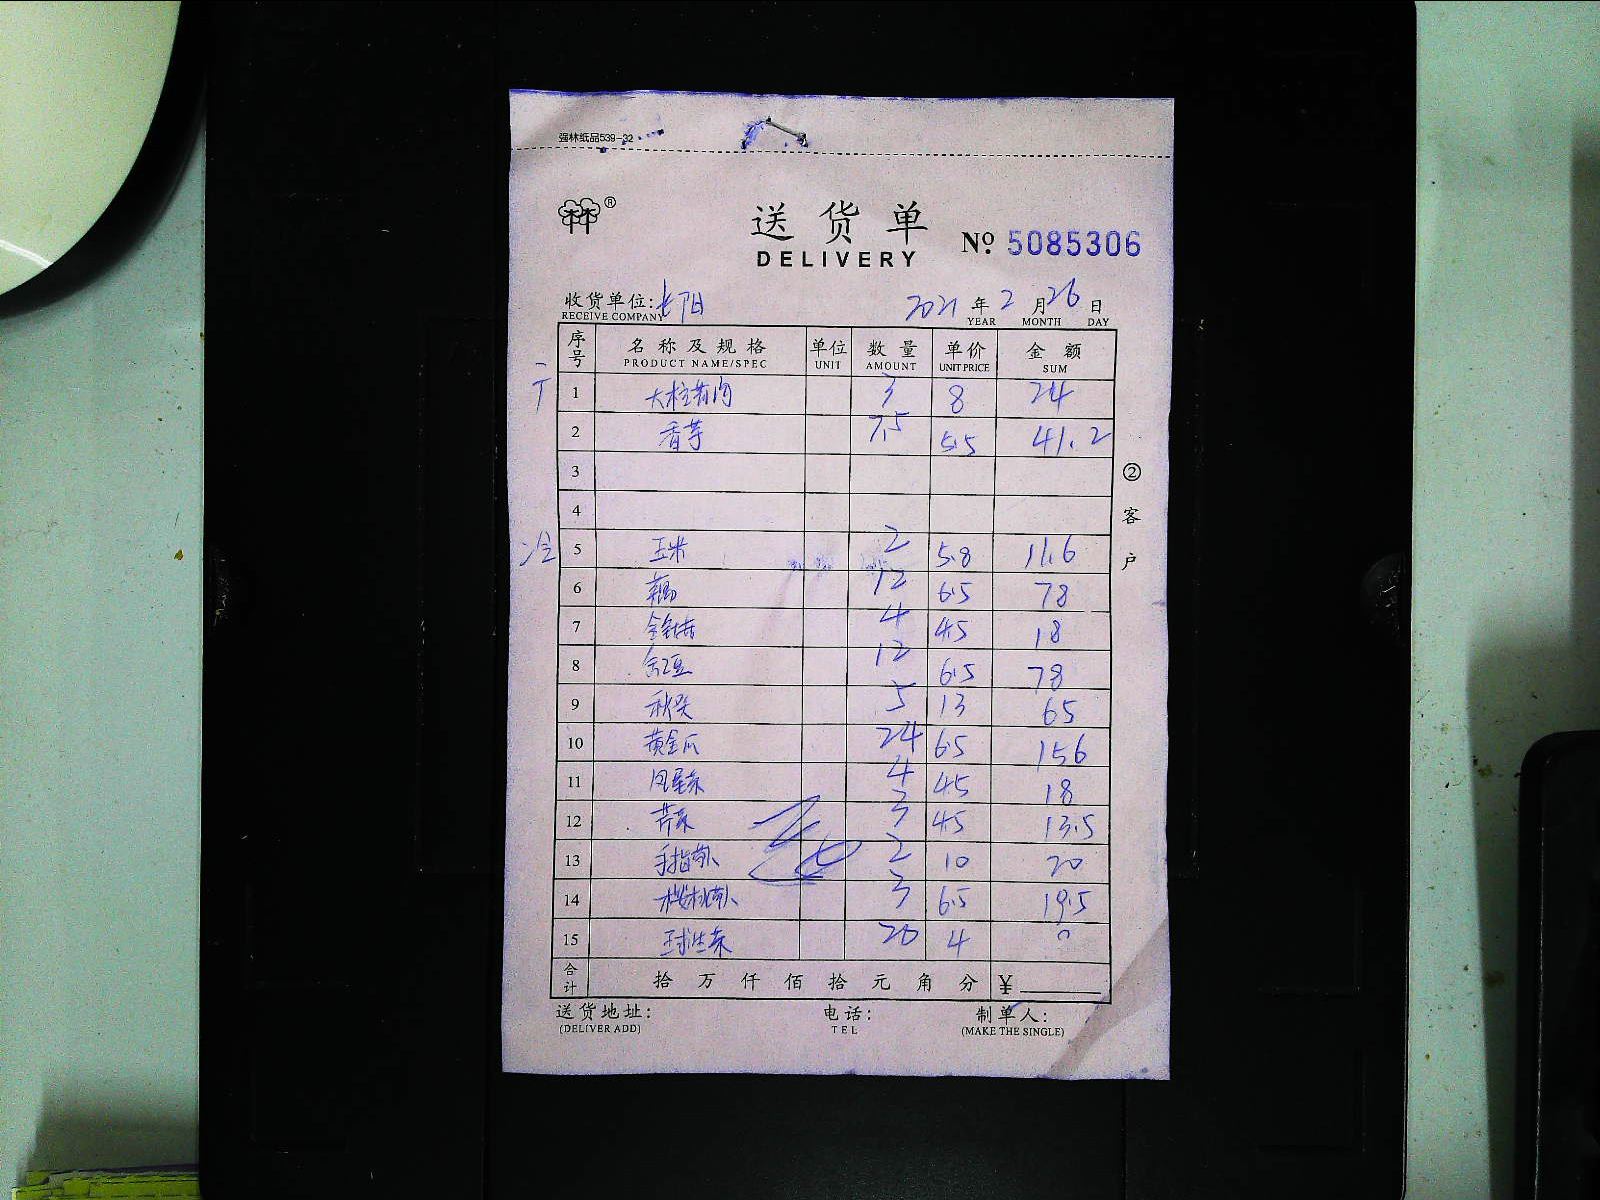 强林纸品539-32
®
送货单
DELIVERY
No. 5085306
收货单位: 长阳 2021 年 2 月 26 日
RECEIVE COMPANY YEAR MONTH DAY
序号 名称及规格 单位 数量 单价 金额
PRODUCT NAME/SPEC UNIT AMOUNT UNIT PRICE SUM
1 3 8 24
2 香芋 7.5 5.5 41.2
3
4
冷 5 玉米 2 5.8 11.6
6 藕 12 6.5 78
7 金针菇 4 4.5 18
8 12 6.5 78
9 秋葵 5 13 65
10 黄金瓜 24 6.5 156
11 4 4.5 18
12 芹菜 3 4.5 13.5
13 手指萝卜 2 10 20
14 樱桃萝卜 3 6.5 19.5
15 球生菜 20 4 0
合计 拾 万 仟 佰 拾 元 角 分 ¥
② 客户
送货地址: 电话: 制单人:
(DELIVER ADD) TEL (MAKE THE SINGLE)